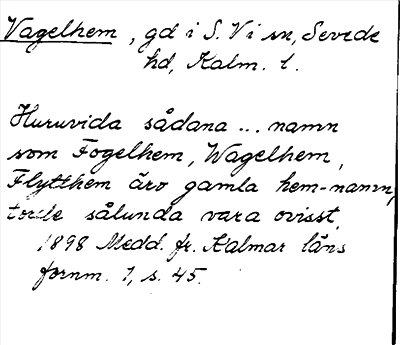 Vagelhem, gd i S. Vi sn, Sevede
hd, Kalm. l.
Huruvida sådana ... namn
som Fogelhem, Wagelhem,
Flytthem äro gamla hem-namn,
torde sålunda vara ovisst.
1898 Medd. fr. Kalmar läns
fornm. 1, s. 45.